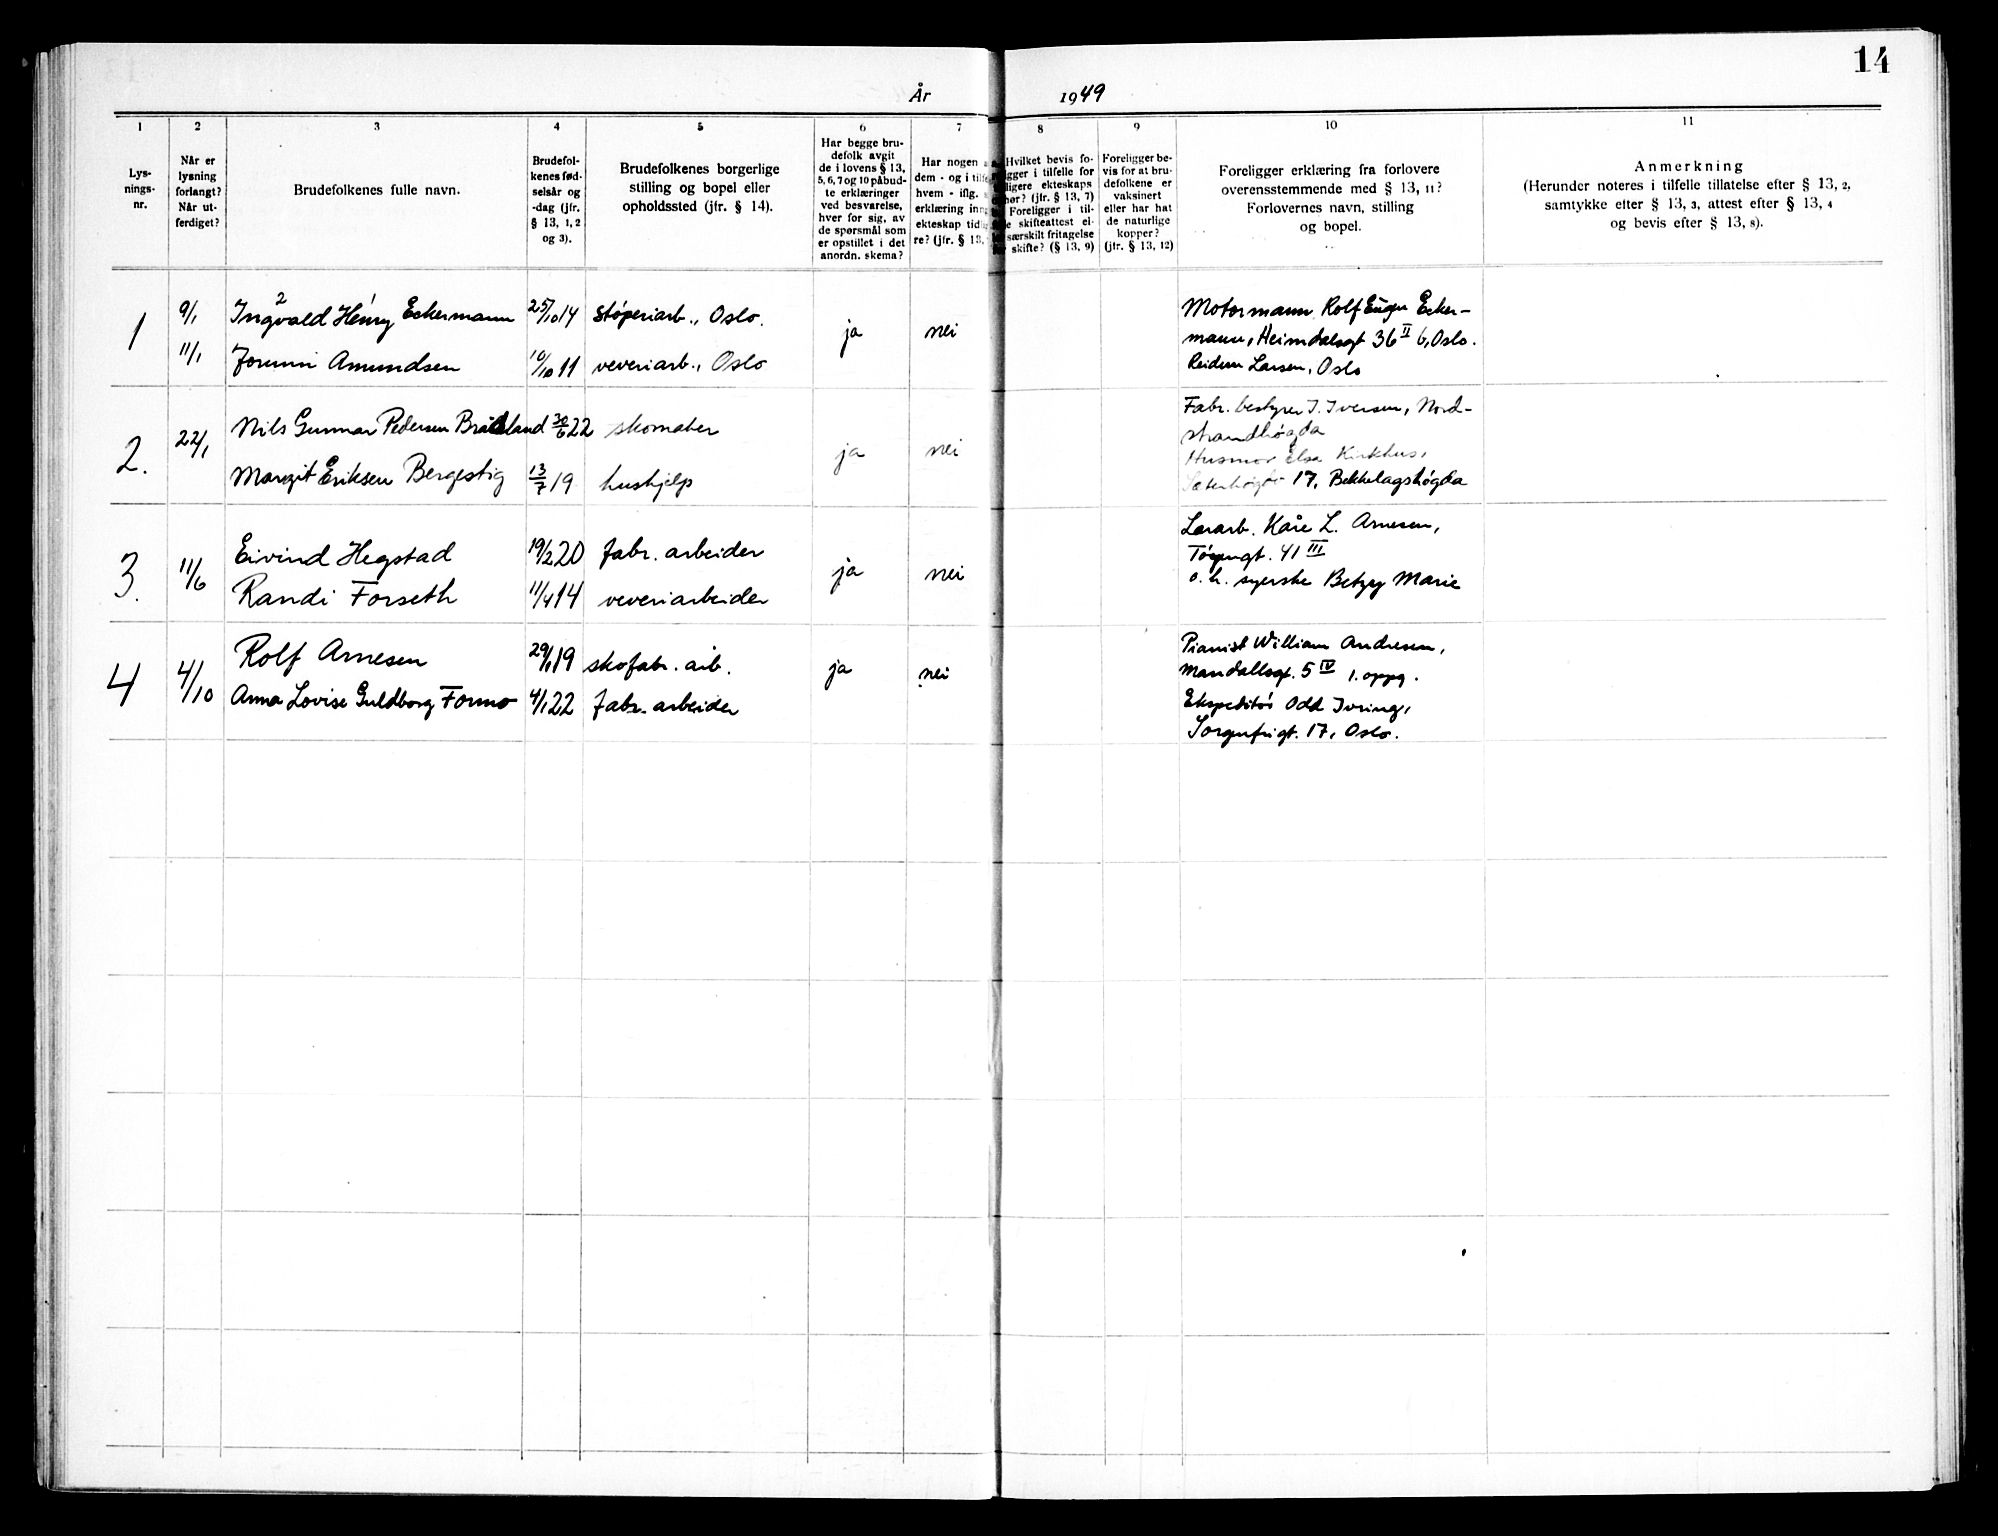 14
År 1949
1 2 3 4 5 6 7 8 9 10 11
Lys-
nings-
nr.
Når er
lysning
forlangt?
Når ut-
ferdiget?
Brudefolkenes fulle navn.
Brudefol-
kenes fød-
selsår og
-dag (jfr.
§ 13, 1, 2
og 3).
Brudefolkenes borgerlige
stilling og bopel eller
opholdssted (jfr. § 14).
Har begge bru-
defolk avgit
de i lovens § 13,
5, 6, 7 og 10 påbud-
te erklæringer
ved besvarelse,
hver for sig, av
de spørsmål som
er opstillet i det
anordn. skema?
Har nogen a
dem - og i tilf
hvem - iflg.
erklæring inn
ekteskap tidl
re? (jfr. § 13,
Hvilket bevis fo-
ligger i tilfelle for
tidligere ekteskaps
ophør? (jfr. § 13, 7)
Foreligger i til-
felle skifteattest el-
særskilt fritagelse
for skifte? (§ 13, 9)
Foreligger be-
vis for at bru-
defolkene er
vaksinert
eller har hat
de naturlige
kopper?
(jfr. § 13, 12)
Foreligger erklæring fra forlovere
overensstemmende med § 13, 11?
Forlovernes navn, stilling
og bopel.
Anmerkning
(Herunder noteres i tilfelle tillatelse efter § 13, 2,
samtykke efter § 13, 3, attest efter § 13, 4
og bevis efter § 13, 8).
1 9/1 Ingvald 2 Henry Eckermann 25/10 14 Støperiarb., Oslo. ja nei
11/1 Jorunn Amundsen 10/10 11 veveriarb., Oslo
Motormann Rolf Eugen Ecker-
mann, Heimdalsgt 36 II 6, Oslo.
Reidun Larsen, Oslo
2. 22/1 Nils Gunnar Pedersen 30/6 22 skomaker ja nei
Margit Eriksen Bergestig 13/7 19 hushjelp
Fabr. bestyrer J. Iversen, Nord-
strandhøgda
Husmor Elsa Kirkhus,
Sæterhøgda 17, Bekkelagshøgda
3. 11/6 Eivind Hegstad 19/2 20 fabr. arbeider ja nei
Randi Forseth 11/4 14 veveriarbeider
Lararb. Kåre L. Arnesen,
41 III
o. h. syerske Betzy Marie
4 4/10 Rolf Arnesen 29/1 19 skofabr. arb. ja nei
Anna Lovise Guldborg Formo 4/1 22 fabr. arbeider
Pianist William Andresen,
Mandallsgt. 5 IV 1. oppg.
Ekspeditør Odd Ivring,
Sorgenfrigt. 17, Oslo.